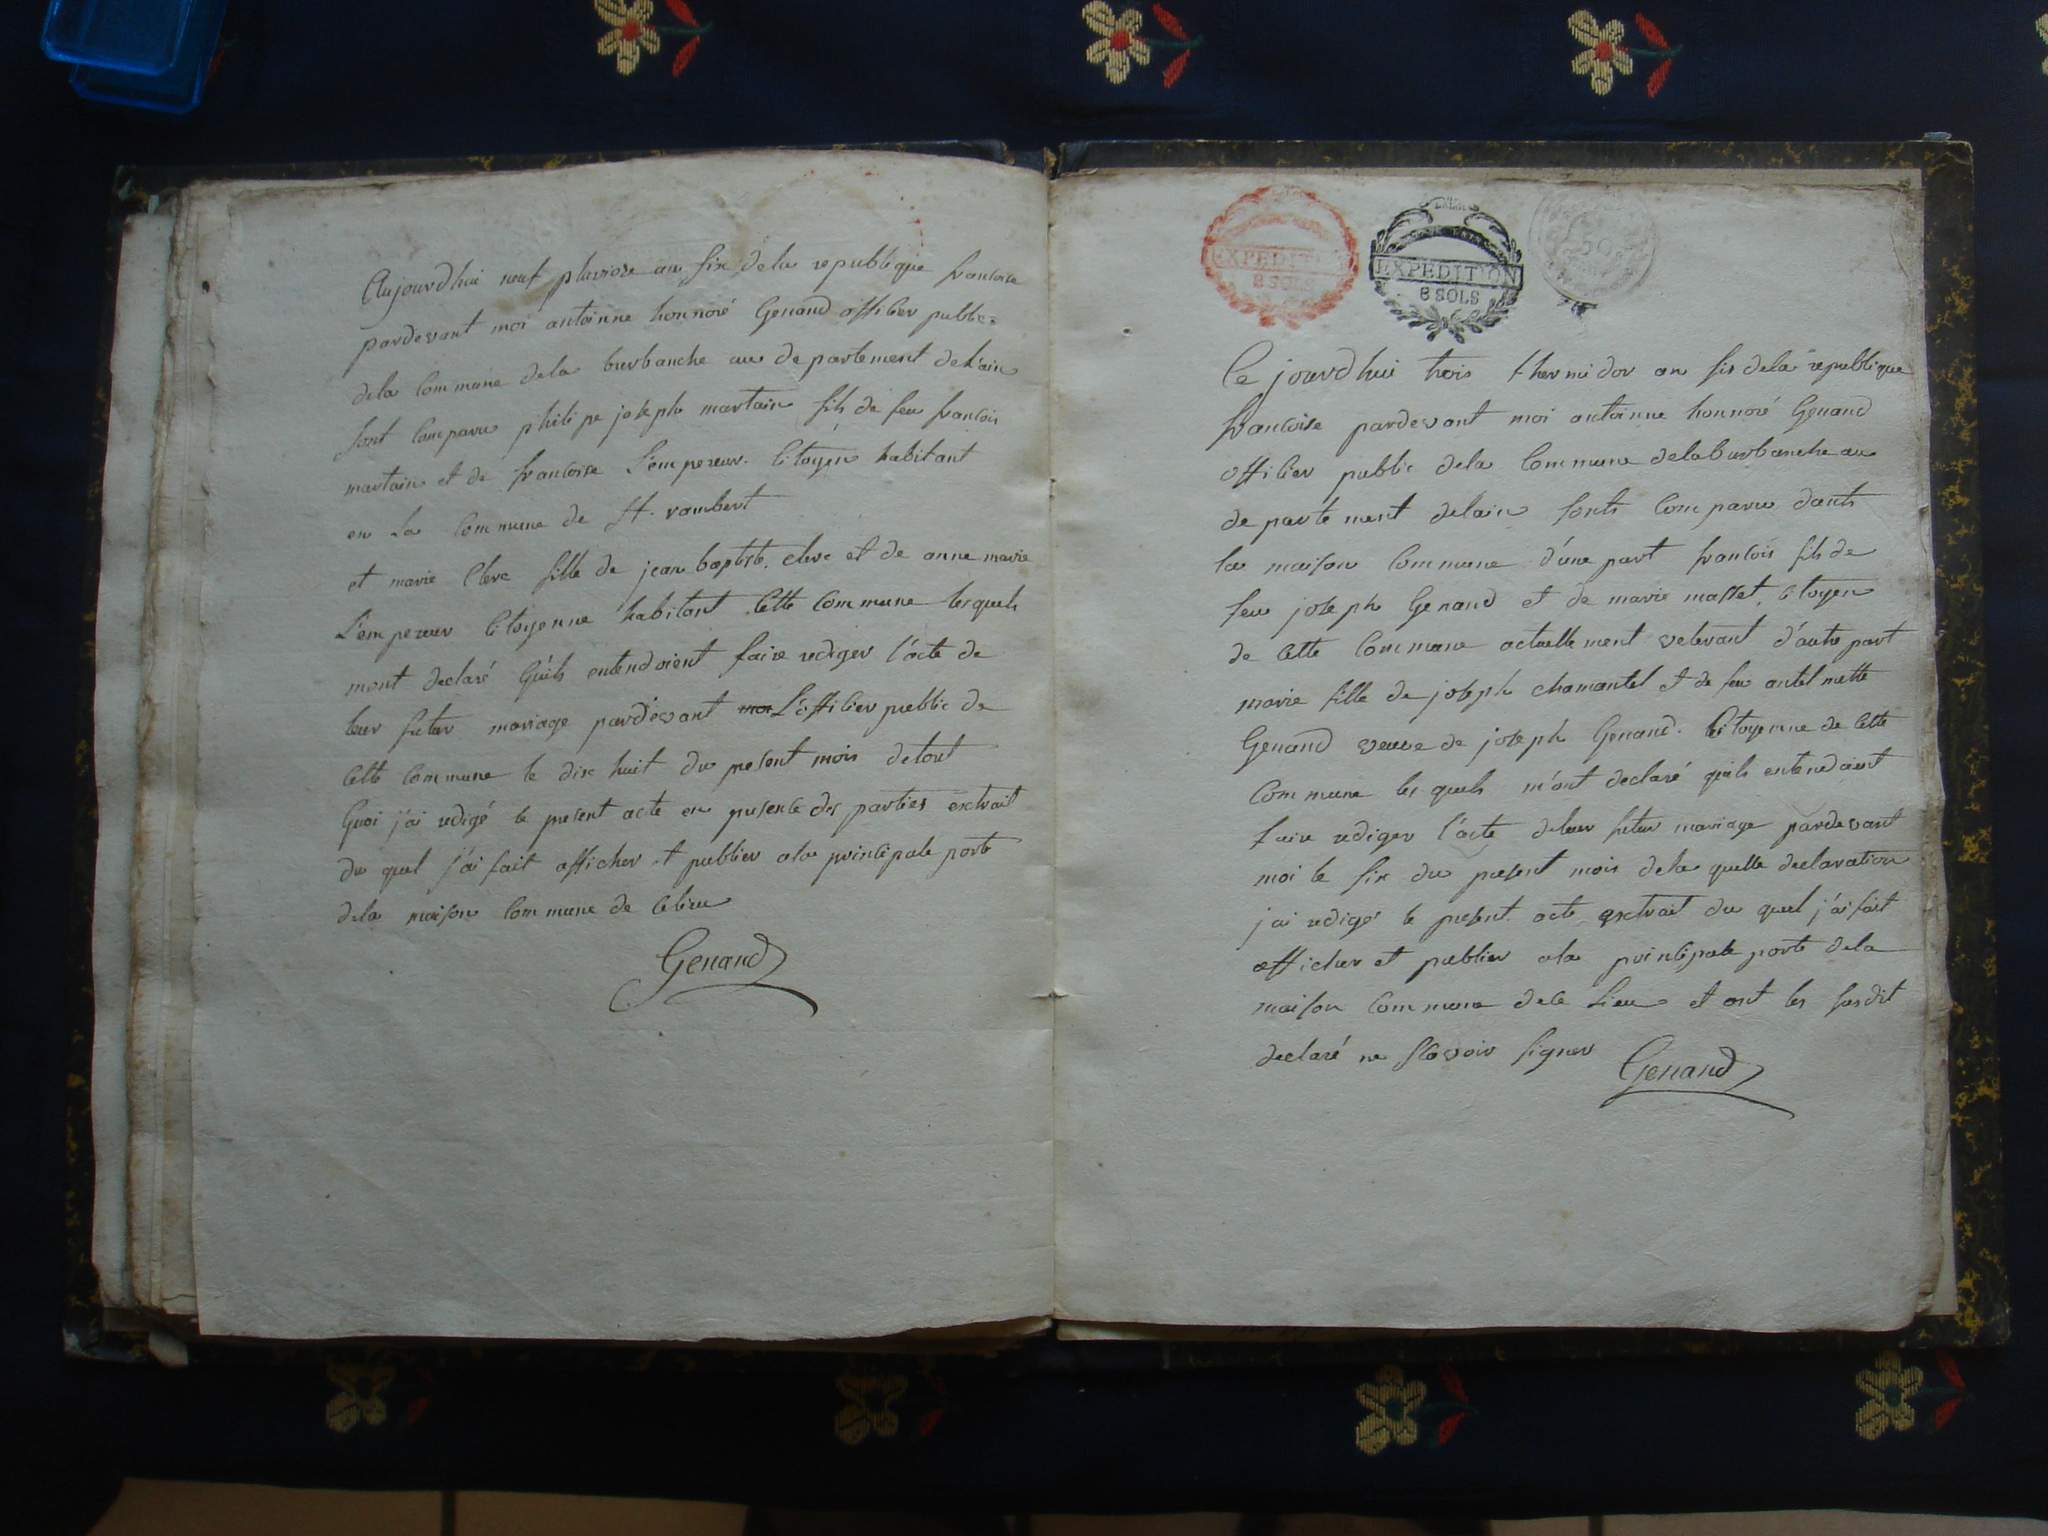 Aujourdhui neuf pluviose an six dela republique francoise
pardevant moi antoinne honnoré Genand officier public
dela Commune dela burbanche au departement delain
sont Comparu philipe joseph martain fils de feu francois
martain et de francoise L'empereur. Citoyen habitant
en la Commune de St. rambert
et marie Clerc fille de jean baptiste Clerc et de anne marie
L'empereur Citoyenne habitant Cette Commune lesquels
mont declaré quils entendoient faire rediger l'acte de
leur futur mariage pardevant moi L'officier public de
Cette Commune le dix huit du present mois detout
Quoi j'ai redigé le present acte en presence des parties extrait
du quel j'ai fait afficher et publier ala principale porte
dela maison Commune de Celieu
Genand
EXPEDITION
8 SOLS
EXPEDITION
8 SOLS
Ce jourdhui trois thermidor an six dela republique
francoise pardevant moi antoinne honnoré Genand
officier public dela Commune delaburbanche au
departement delain sonts Comparu dants
la maison Commune d'une part francois fils de
feu joseph Genand et de marie masset, Citoyen
de Cette Commune actuellement d'autre part
marie fille de joseph chamantel et de feu antelmette
Genand veuve de joseph Genand. Citoyenne de Cette
Commune les quels m'ont declaré quils entendoient
faire rediger l'acte deleur futur mariage pardevant
moi le six du present mois dela quelle declaration
j'ai redigé le present acte, extrait du quel j'ai fait
afficher et publier ala principale porte dela
maison Commune dece Lieu et ont les susdit
declaré ne scavoir signer
Genand